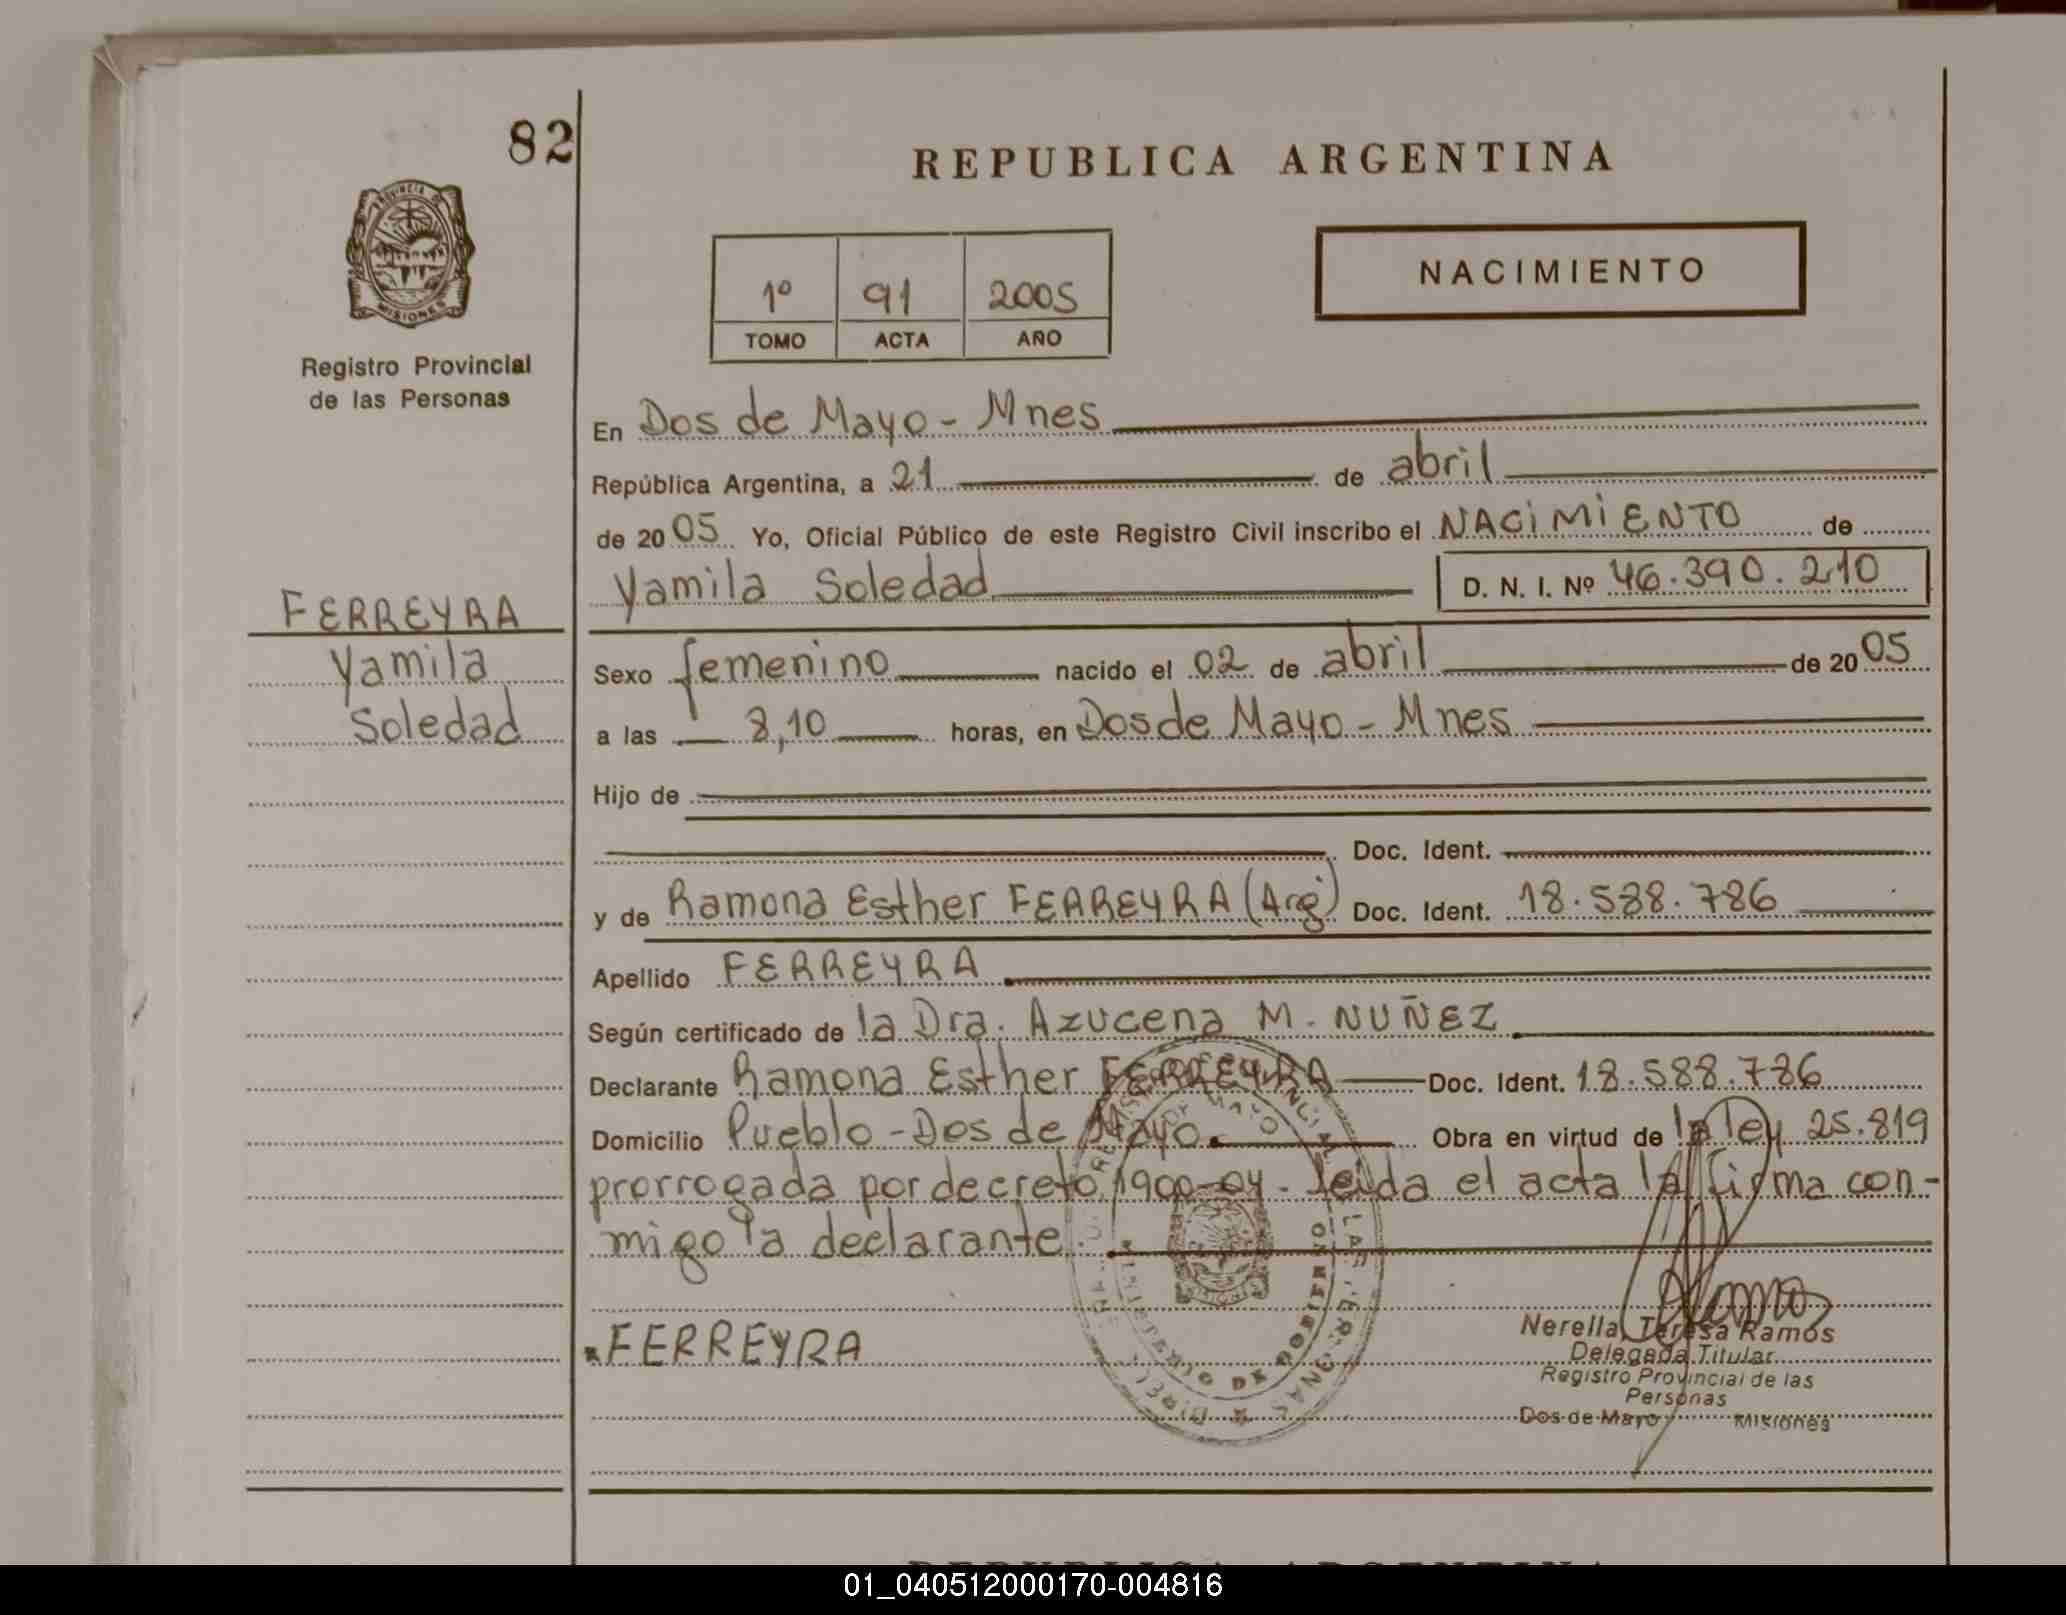 82
REPUBLICA ARGENTINA
PROVINCIA DE
MISIONES
Registro Provincial
de las Personas
1º 91 2005
TOMO ACTA AÑO
NACIMIENTO
En Dos de Mayo - Mnes
República Argentina, a 21 de abril
de 2005 Yo, Oficial Público de este Registro Civil inscribo el NACIMIENTO de
Yamila Soledad D. N. I. Nº 46.390.210
FERREYRA
Yamila
Soledad
Sexo femenino nacido el 02 de abril de 2005
a las 8,10 horas, en Dos de Mayo - Mnes
Hijo de
Doc. Ident.
y de Ramona Esther FERREYRA (Arg) Doc. Ident. 18.588.786
Apellido FERREYRA
Según certificado de la Dra. Azucena M. NUÑEZ
Declarante Ramona Esther FERREYRA Doc. Ident. 18.588.786
Domicilio Pueblo - Dos de Mayo Obra en virtud de la ley 25.819
prorrogada por decreto 1900-04 - Leida el acta la firma con-
migo la declarante.
FERREYRA
MINISTERIO DE GOBIERNO
Nerella Teresa Ramos
Delegada Titular
Registro Provincial de las
Personas
Dos de Mayo Misiones
REPUBLICA ARGENTINA
01_040512000170-004816